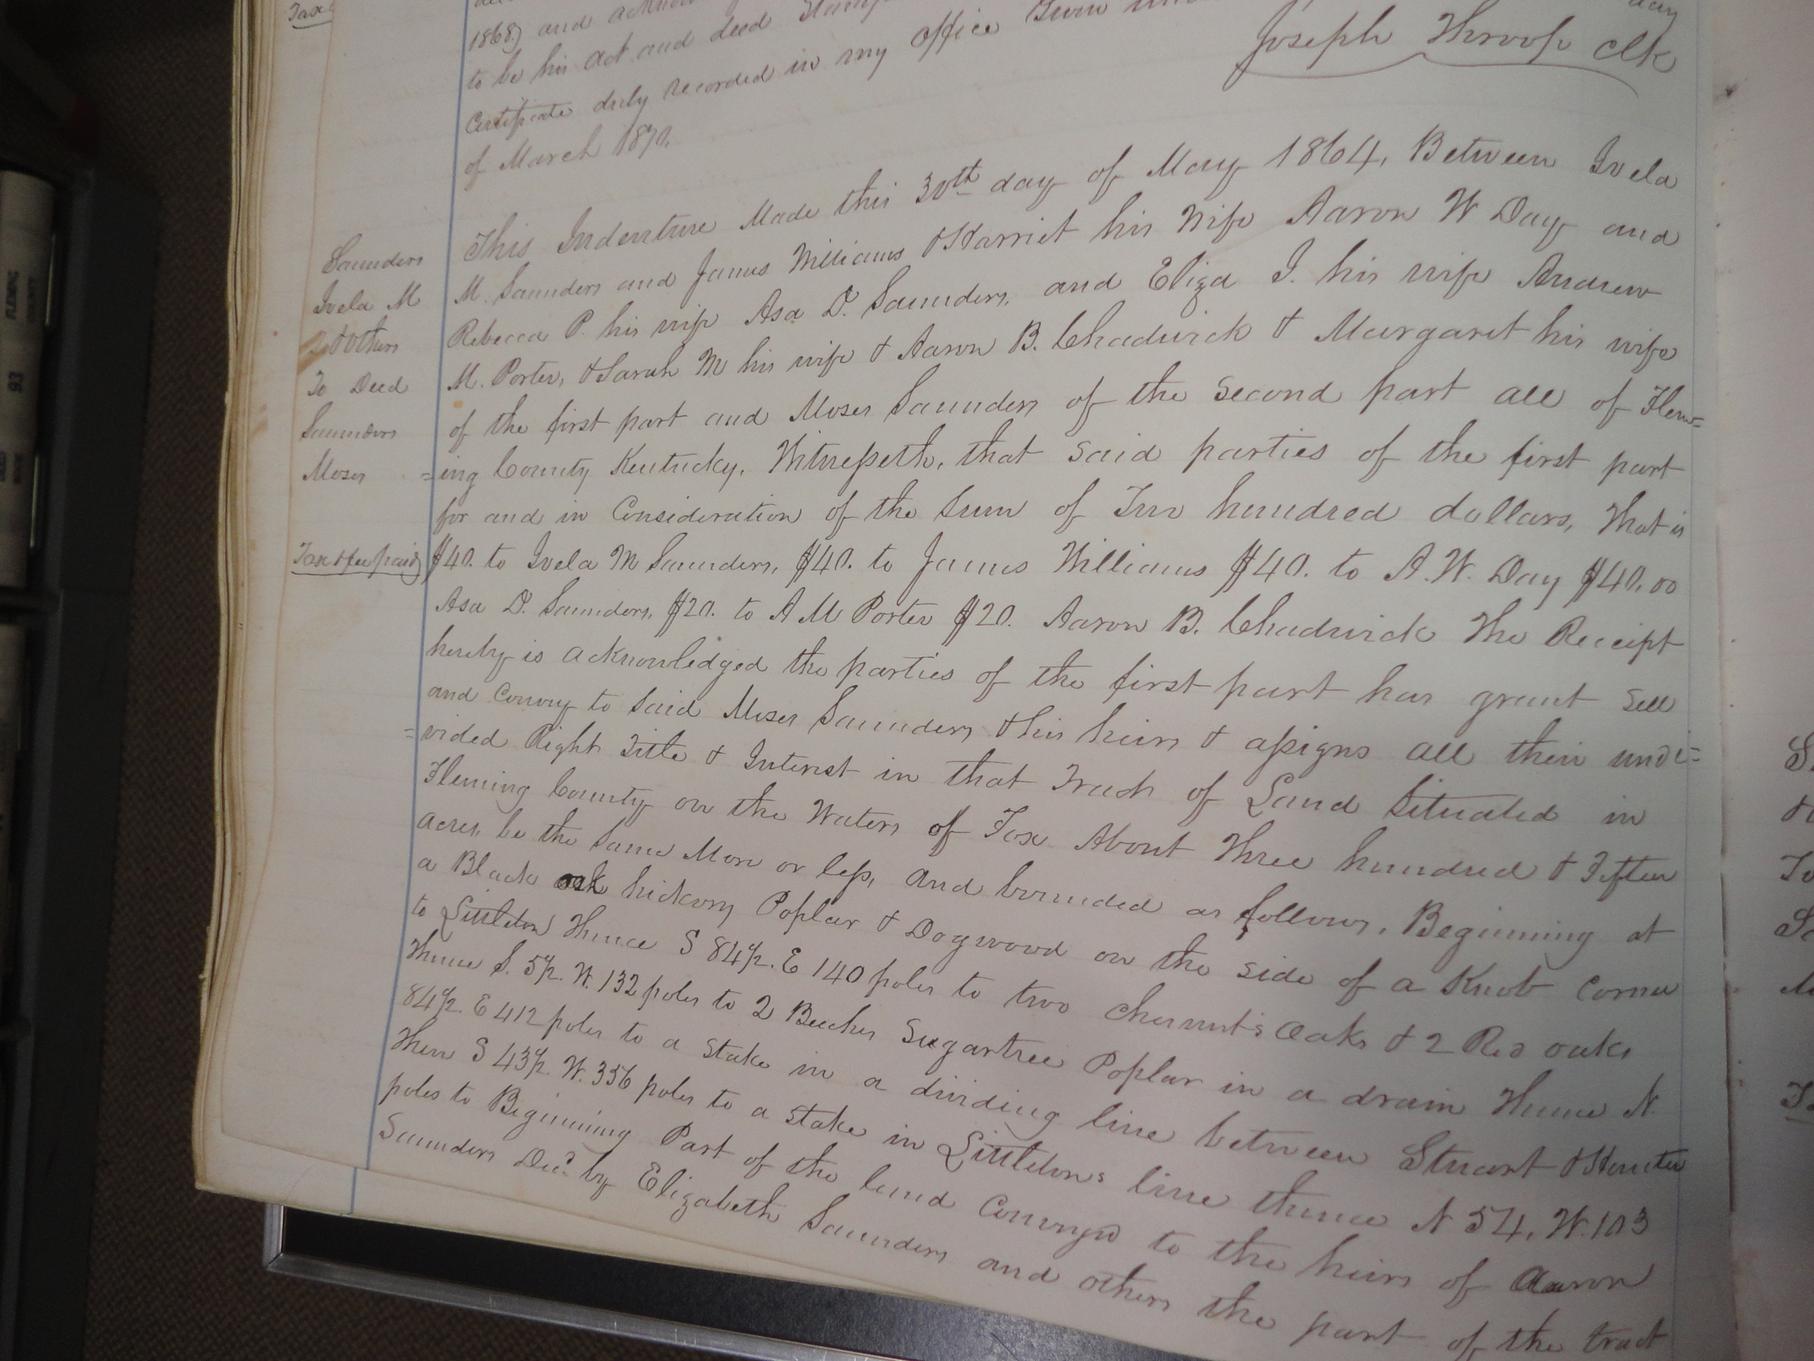 Tax
1868) and
to be his act and deed
Certificate duly recorded in my office Given
day
of March 1870.
Joseph Throop Clk
Saunders
Ivela M
& others
To Deed
Saunders
Moses
Tax & fee paid
This Indenture Made this 30th day of May 1864, Between Ivela
M. Saunders and James Williams & Harriet his Wife Aaron W Day and
Rebecca P. his wife Asa D. Saunders, and Eliza J. his wife Andrew
M. Porter, & Sarah M his wife & Aaron B. Chadwick & Margaret his wife
of the first part and Moses Saunders of the second part all of Flem=
=ing County Kentucky, Witnesseth, that said parties of the first part
for and in Consideration of the Sum of Two hundred dollars, That is
$40. to Ivela M Saunders, $40. to James Williams $40. to A. W. Day $40.00
Asa D. Saunders, $20. to A M Porter $20. Aaron B. Chadwick The Receipt
hereby is acknowledged the parties of the first part has grant Sell
and Convey to said Moses Saunders & his heirs & assigns all their undi=
=vided Right Title & Interest in that Track of Land Situated in
Fleming County on the Waters of Fox About Three hundred & Fifteen
acres, be the same More or less, and bounded as follows, Beginning at
a Black oak hickory Poplar & Dogwood on the side of a Knob Corner
to Littleton Thence S 84½. E 140 poles to two Chesnut's Oaks & 2 Red oaks
Thence S. 5½. W. 132 poles to 2 Beeches Sugartree Poplar in a drain Thence N.
84½. E 412 poles to a Stake in a dividing line between Stuart & Hunter
Then S 43½. W. 356 poles to a stake in Littletons line thence N 54, W. 103
poles to Beginning Part of the land Conveyed to the heirs of Aaron
Saunders Decd. by Elizabeth Saunders and others the part of the tract